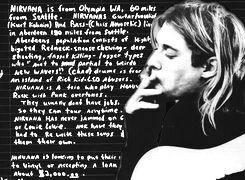 NIRVANA is from Olympia WA, 60 miles
from Seattle. NIRVANAS Guitar/
(Kurt Kobain) And Bass-(Chris Novoselic)
in Aberdeen 150 miles from Seattle.
Aberdeens population consists of
bigoted Redneck-snoose chewing-deer
shooting, faggot killing- logger types
who "just too partial to weird
new wavers". (chad) drums is from
an island of Rich Kids.
NIRVANA is a trio who play Heavy
Rock with Punk overtones.
They usually dont have jobs.
So they can tour anytime.
NIRVANA has never Jammed on
or Louie Louie. Nor have they
had to Re write these songs
them their own.
NIRVANA is looking to put their
to Vinyl or accepting a loan
About $2,000.00